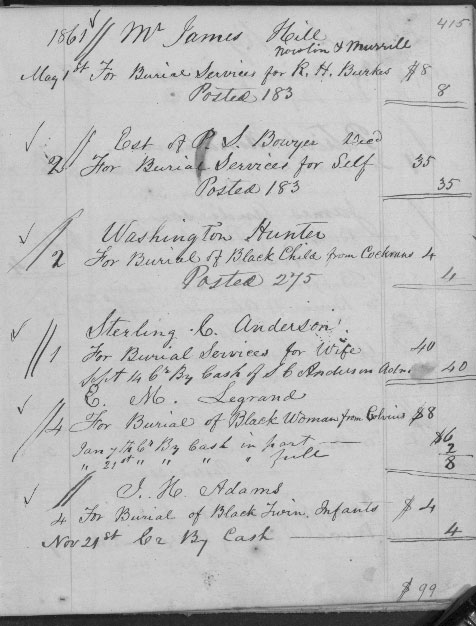 415
1861 // Mr James Hill
Nowlin & Murrill
May 1st For Burial Services for R. H. Burks $8
8
Posted 183
// Est of R S. Bowyer Decd
2 For Burial Services for Self 35
Posted 183 35
Washington Hunter
2 For Burial of Black Child from Cochrans 4
Posted 275 4
Sterling C. Anderson
// 1 For Burial Services for Wife 40
Sept 14 Cr By Cash of S C Anderson Adm 40
E. M. Legrand
// 4 For Burial of Black Woman from $8
Jan 7th Cr By Cash in part — $6
" 21st " " " " full 2
8
// J. H. Adams
4 For Burial of Black Twin, Infants $4
Nov 21st Cr By Cash — 4
$99